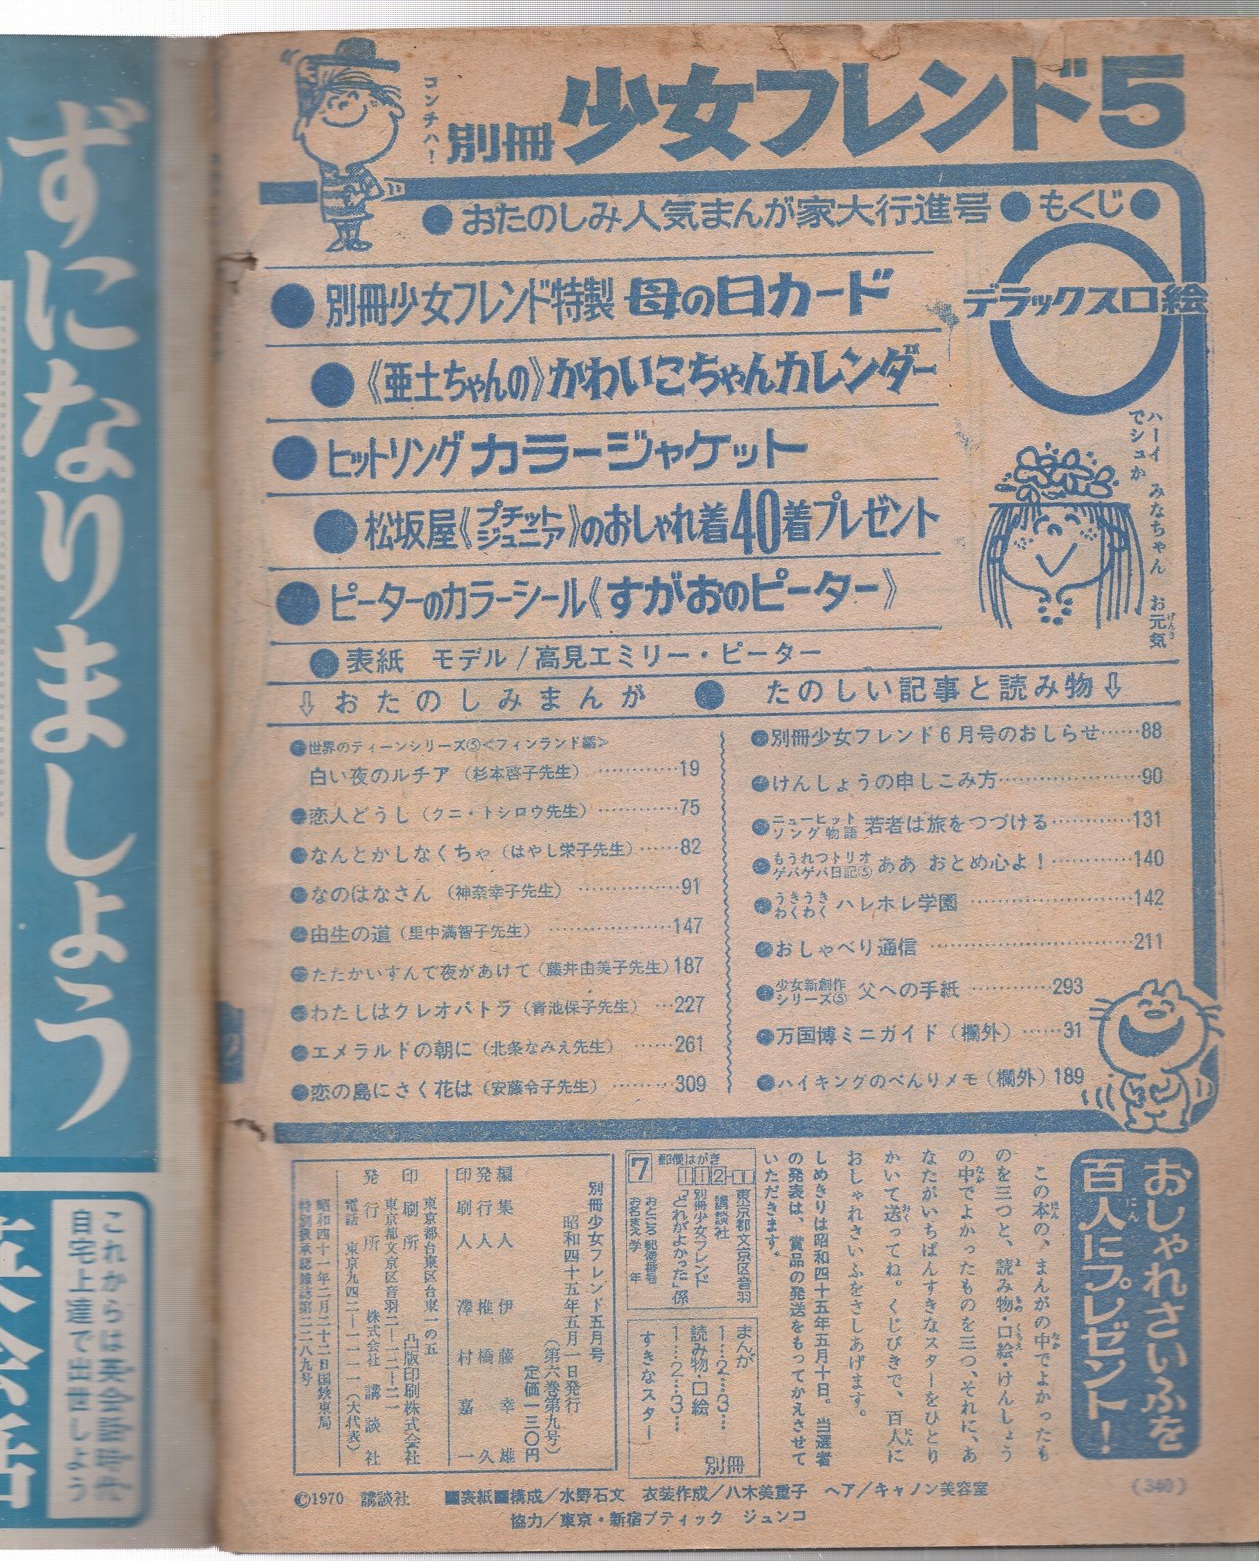 コンチハ!
別冊 少女フレンド5
●おたのしみ人気まんが家大行進号●もくじ●
デラックス口絵
●別冊少女フレンド特製 母の日カード
●《亜土ちゃんの》かわいこちゃんカレンダー
●ヒットソング カラージャケット
●松坂屋《プチットジュニア》のおしゃれ着40着プレゼント
●ピーターのカラーシール《すがおのピーター》
●表紙 モデル/高見エミリー・ピーター
ハーイ みなちゃん お元気
でシュか
⇩おたのしみまんが ● たのしい記事と読み物⇩
●世界のティーンシリーズ⑤<フィンランド編>
白い夜のルチア(杉本啓子先生)…………19
●恋人どうし(クニ・トシロウ先生)…………75
●なんとかしなくちゃ(はやし栄子先生)……82
●なのはなさん(神奈幸子先生)……………91
●由生の道(里中満智子先生)………………147
●たたかいすんで夜があけて(藤井由美子先生)187
●わたしはクレオパトラ(青池保子先生)…227
●エメラルドの朝に(北条なみえ先生)……261
●恋の島にさく花は(安藤令子先生)………309
●別冊少女フレンド6月号のおしらせ……88
●けんしょうの申しこみ方…………………90
●ニューヒットソング物語 若者は旅をつづける…………131
●もうれつトリオゲバゲバ日記⑤ ああ おとめ心よ!…………140
●うきうきわくわく ハレホレ学園……………………142
●おしゃべり通信…………………………211
●少女新創作シリーズ⑤ 父への手紙…………293
●万国博ミニガイド(欄外)……31
●ハイキングのべんりメモ(欄外)189
おしゃれさいふを
百人にプレゼント!
この本の、まんがの中でよかったも
のを三つと、読み物・口絵・けんしょう
の中でよかったものを三つ、それに、あ
なたがいちばんすきなスターをひとり
かいて送ってね。くじびきで、百人に
おしゃれさいふをさしあげます。
しめきりは昭和四十五年五月十日。当選者
の発表は、賞品の発送をもってかえさせて
いただきます。
郵便はがき
7
112
東京都文京区音羽
講談社
別冊少女フレンド
「どれがよかった」係
おところ 郵便番号
お名まえ 学年
まんが
1…2…3…
読み物・口絵
1…2…3…
すきなスター
別冊
別冊少女フレンド五月号
昭和四十五年五月一日発行
(第六巻第九号)
定価一三〇円
編集人 伊藤幸雄
発行人 椎橋久
印刷人 澤村嘉一
東京都台東区台東一の五
印刷所 凸版印刷株式会社
東京都文京区音羽二―一二―二一
発行所 株式会社 講談社
電話 東京九四二―一一一一(大代表)
昭和四十一年二月二十二日国鉄東局
特別扱承認雑誌第二二八九号
©1970 講談社
■表紙■構成/水野石文 衣装作成/八木美重子 ヘア/キャノン美容室
協力/東京・新宿ブティック ジュンコ
(340)
ずになりましょう
これからは英会話時代
自宅上達で出世しよう
英会話